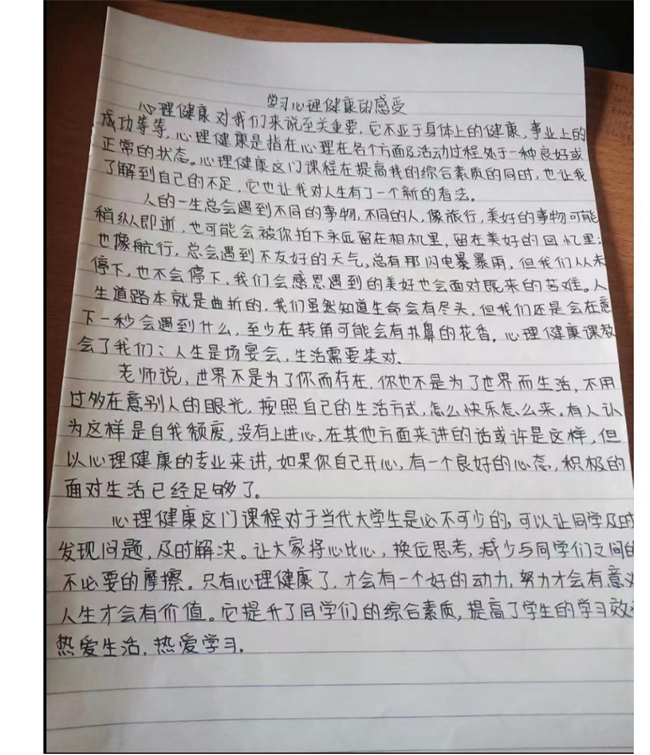 学习心理健康的感受
心理健康对我们来说至关重要,它不亚于身体上的健康,事业上的
成功等等,心理健康是指在心理在各个方面及活动过程处于一种良好或
正常的状态。心理健康这门课程在提高我的综合素质的同时,也让我
了解到自己的不足,它也让我对人生有了一个新的看法。
人的一生总会遇到不同的事物,不同的人,像旅行,美好的事物可能
稍纵即逝,也可能会被你拍下永远留在相机里,留在美好的回忆里;
也像航行,总会遇到不友好的天气,总有那闪电暴暴雨,但我们从未
停下,也不会停下,我们会感恩遇到的美好也会面对既来的苦难。人
生道路本就是曲折的,我们虽然知道生命会有尽头,但我们还是会在意
下一秒会遇到什么,至少在转角可能会有扑鼻的花香。心理健康课教
会了我们:人生是场宴会,生活需要柔对.
老师说,世界不是为了你而存在,你也不是为了世界而生活,不用
过多在意别人的眼光,按照自己的生活方式,怎么快乐怎么来。有人认
为这样是自我颓废,没有上进心,在其他方面来讲的话或许是这样,但
以心理健康的专业来讲,如果你自己开心,有一个良好的心态,积极的
面对生活已经足够了。
心理健康这门课程对于当代大学生是必不可少的,可以让同学及时
发现问题,及时解决。让大家将心比心,换位思考,减少与同学们之间的
不必要的摩擦。只有心理健康了,才会有一个好的动力,努力才会有意义
人生才会有价值。它提升了同学们的综合素质,提高了学生的学习效
热爱生活,热爱学习.